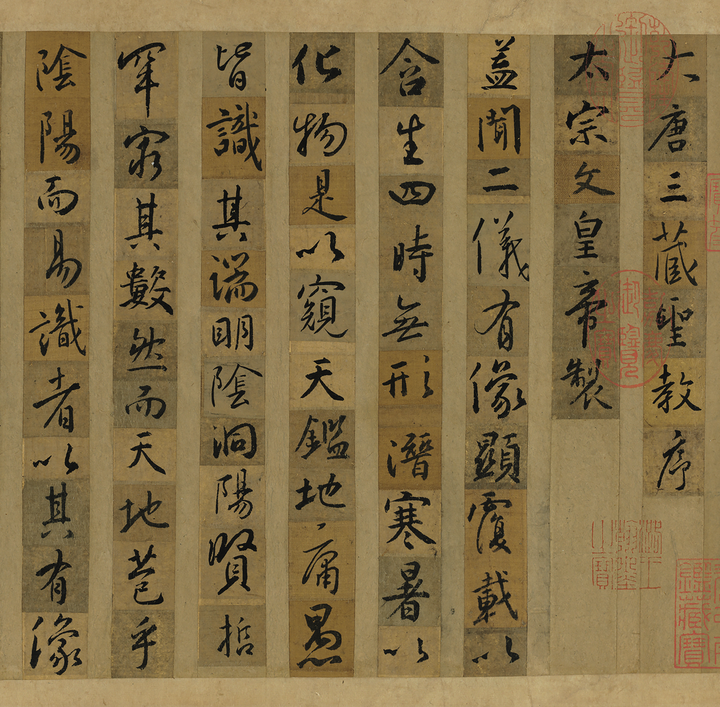 大唐三藏聖教序
太宗文皇帝製
蓋聞二儀有像顯覆載以
含生四時無形潛寒暑以
化物是以窺天鑑地庸愚
皆識其端明陰洞陽賢哲
罕窮其數然而天地苞乎
陰陽而易識者以其有像